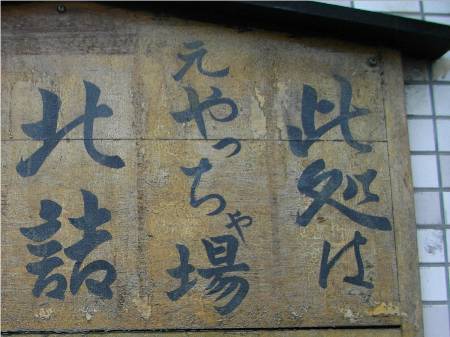 此処は
元やっちゃ場
北詰